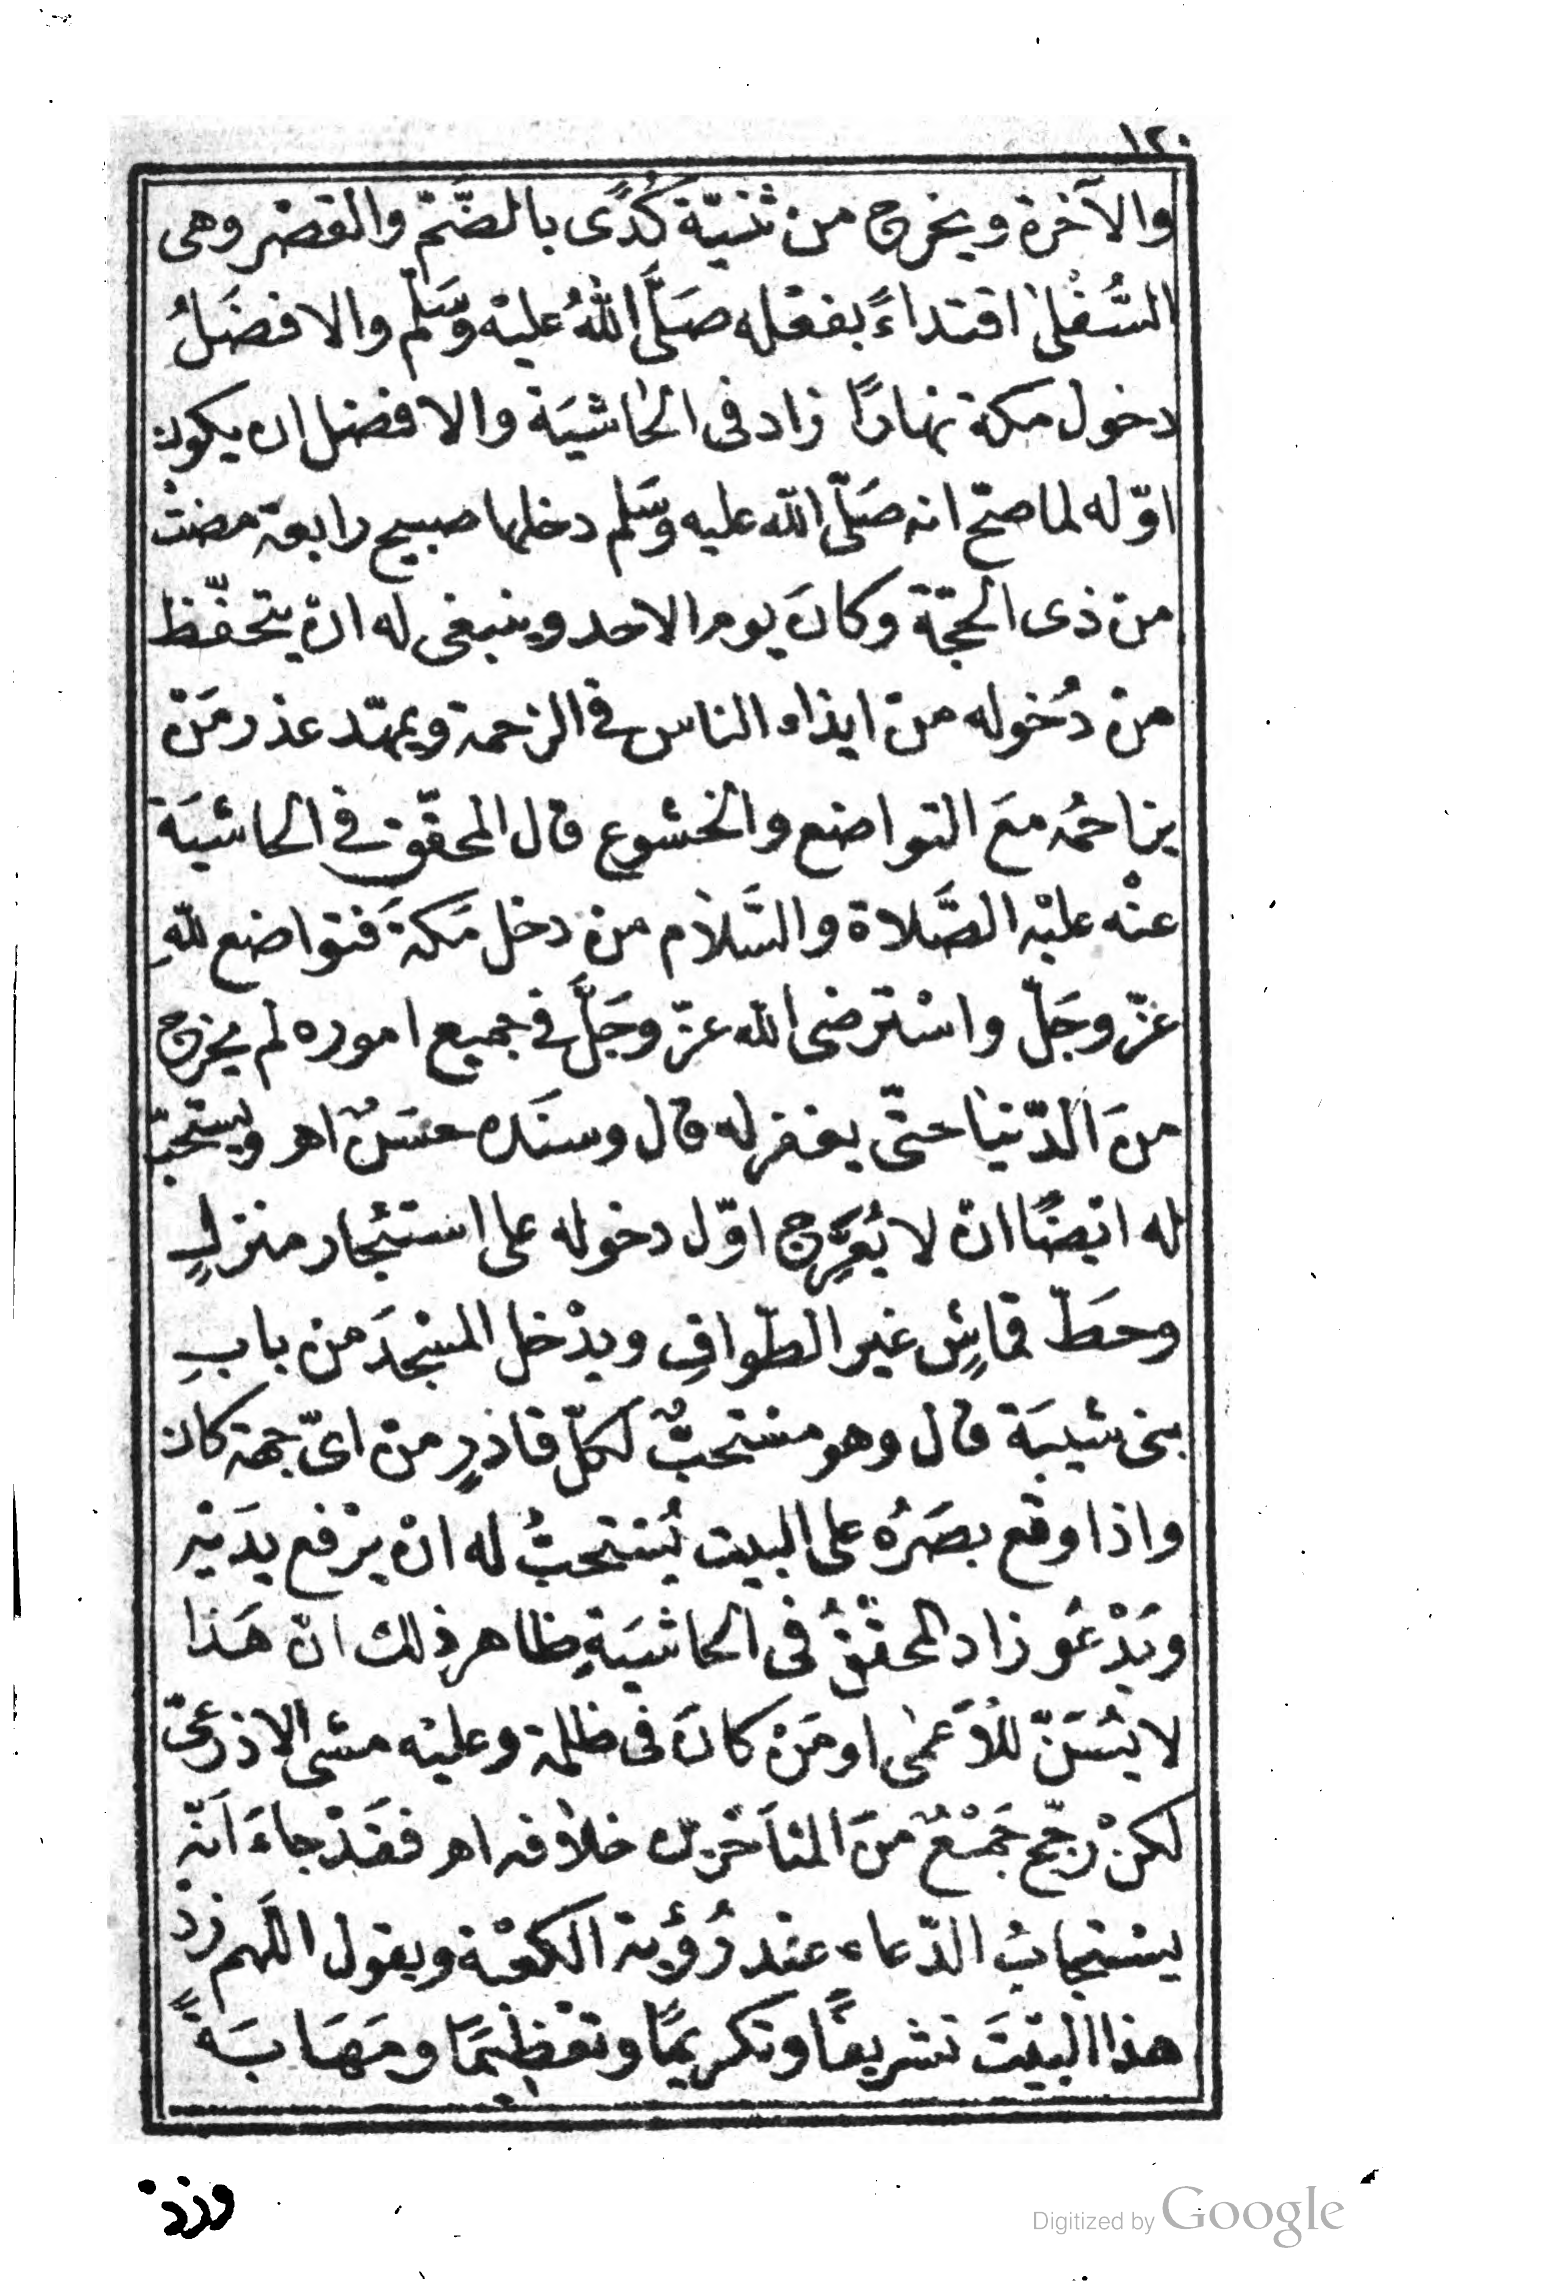 ١٢٠
والآخرة ويخرج من ثنيّة كُدًى بالضّمّ والقصْر وهى
السُّفْلىٰ اقتداءً بفعْله صَلَّى اللّٰهُ عليْه وَسَلّم والافضَلُ
دخول مكة نهارًا زاد فى الحٰاشيَة والافضل ان يكون
اوّله لما صحّ انه صَلّى اللّه عليه وَسَلم دخلها صبيح رابعة مضتْ
من ذى الحجّة وكانَ يوم الاحد وينبغى له انْ يتحفّظ
منْ دُخوله منْ ايذاء الناس فى الزحمة ويمهّد عذر مَنْ
يزاحمُه معَ التواضع والخشوع قال المحقّق فى الحاشيَة
عنْه عليْه الصَّلاة والسَّلاٰم منْ دخل مَكةَ فتواضع للّٰهِ
عزّ وجَلّ واسْترضى اللّٰه عزّ وجَلَّ فى جميع اموره لم يخرج
منَ الدّنيٰا حتّى يغفر له قال وسنَده حسَنٌ اهـ ويستحبّ
له ايضًا انْ لا يُعَرِّج اوّل دخوله على استئجار منزلٍ
وحطّ قماشٍ غير الطّوافِ ويدْخل المسْجدَ من بابِ
بنى شيبَة قال وهو مسْتحبٌّ لكلّ قادٍم من اىّ جهة كان
واذا وقع بصَرُه على البيت يُسْتحبُّ له انْ يرْفع يدَيْه
ويَدْعُو زاد المحقّقُ فى الحاشيَةِ ظاهر ذلك انّ هَذا
لا يُسَنّ للْاَعمٰى او مَنْ كانَ فى ظلمة وعليْه مشى الاذرعىّ
لكنْ رجّح جَمْعٌ منَ المتأخّرين خلاٰفه اهـ فقَدْ جاءَ اَنّه
يسْتجابُ الدّعاء عنْد رُؤْية الكعْبة ويقول اللّهم زدْ
هذا البيْتَ تشريفًا وتكريمًا وتعْظيمًا ومَهَابَةً
وزد
Digitized by Google